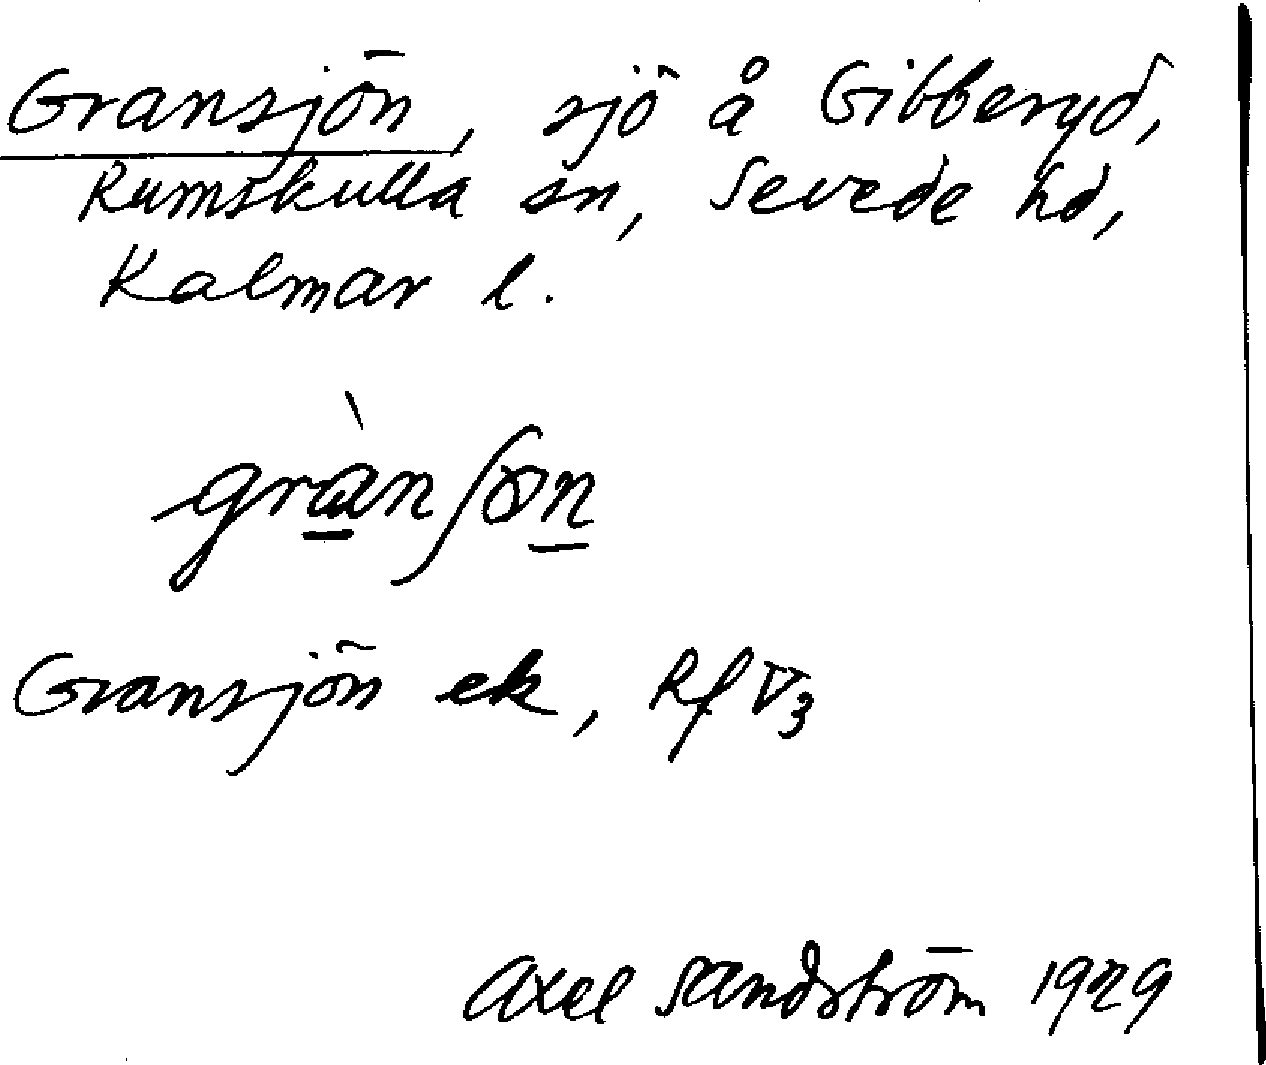 Gransjön, sjö å Gibberyd,
Rumskulla sn, Sevede hd,
Kalmar l.
grànʃɷn
Gransjön ek, Rf V3
Axel Sandström 1929